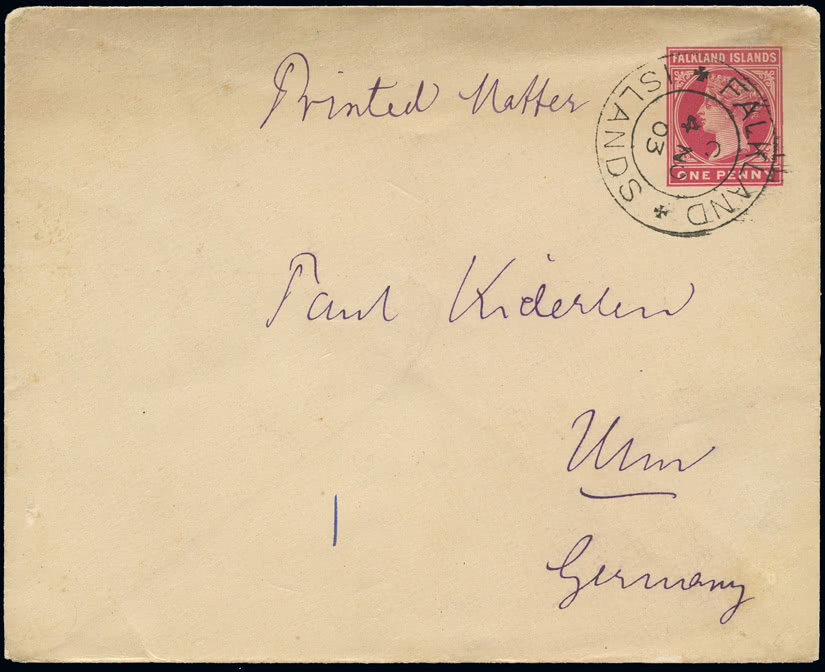 Printed Matter
FALKLAND ISLANDS
ONE PENNY
FALKLAND ISLANDS
C
4 NO
03
Paul Kiderlen
Ulm
Germany